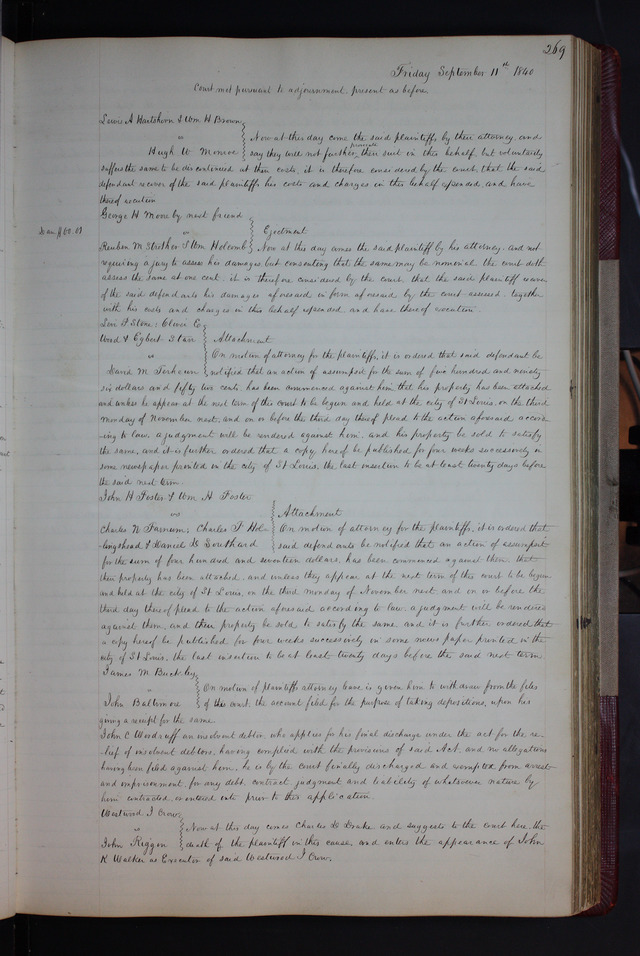 269
Friday September 11th 1840
Court met pursuant to adjournment, present as before.
Lewis A Hartshorn & Wm H Brown
vs
Hugh W Monroe
Now at this day come the said plaintiffs by their attorney and
say they will not further prosecute their suit in this behalf but voluntarily
suffer the same to be discontinued at their costs, it is therefore considered by the court that the said
defendant recover of the said plaintiffs his costs and charges in this behalf expended, and have
thereof execution
George H Moore by next friend
vs
Reuben M Strother & Wm Holcomb
Dam $00.01
Ejectment
Now at this day comes the said plaintiff by his attorney, and not
requiring a jury to assess his damages but consenting that the same may be nominal the court doth
assess the same at one cent. it is therefore considered by the court, that the said plaintiff recover
of the said defendants his damages aforesaid in form aforesaid by the court assessed, together
with his costs and charges in this behalf expended, and have thereof execution.
Levi F Stone, Oliver E
Wood & Egbert Starr
vs
David M
Attachment
On motion of attorney for the plaintiffs, it is ordered that said defendant be
notified that an action of assumpsit for the sum of five hundred and ninety
six dollars and fifty two cents, has been commenced against him, that his property has been attached
and unless he appear at the next term of this court to be begun and held at the city of St Louis, on the third
monday of November next, and on or before the third day thereof plead to the action aforesaid accord
-ing to law, a judgment will be rendered against him, and his property be sold to satisfy
the same, and it is further ordered that a copy hereof be published for four weeks successively in
some newspaper printed in the city of St Louis, the last insertion to be at least twenty days before
the said next term.
John H Foster & Wm H Foster
vs
Charles N Farnum, Charles F Hol-
lingshead & Daniel D Southard
Attachment
On motion of attorney for the plaintiffs, it is ordered that
said defendants be notified that an action of assumpsit
for the sum of four hundred and seventeen dollars, has been commenced against them, that
their property has been attached, and unless they appear at the next term of this court to be begun
and held at the city of St Louis, on the third monday of November next and on or before the
third day thereof plead to the action aforesaid according to law, a judgment will be rendered
against them, and their property be sold to satisfy the same, and it is further ordered that
a copy hereof be published for four weeks successively in some news paper printed in the
city of St Louis, the last insertion to be at least twenty days before the said next term
James M Buckley
vs
John Baltimore
On motion of plaintiffs attorney leave is given him to withdraw from the files
of this court, the account filed for the purpose of taking depositions, upon his
giving a receipt for the same.
John C Woodruff an insolvent debtor, who applies for his final discharge under the act for the re-
-lief of insolvent debtors, having complied with the provisions of said Act, and no allegations
having been filed against him, he is by the court finally discharged and exempted from arrest
and imprisonment for any debt, contract, judgment and liability of whatsoever nature by
him contracted, or entered into prior to this application.
Westwood J Crow
vs
John Riggin
Now at this day comes Charles D Drake and suggests to the court here, the
death of the plaintiff in this cause, and enters the appearance of John
K Walker as Executor of said Westwood J Crow.